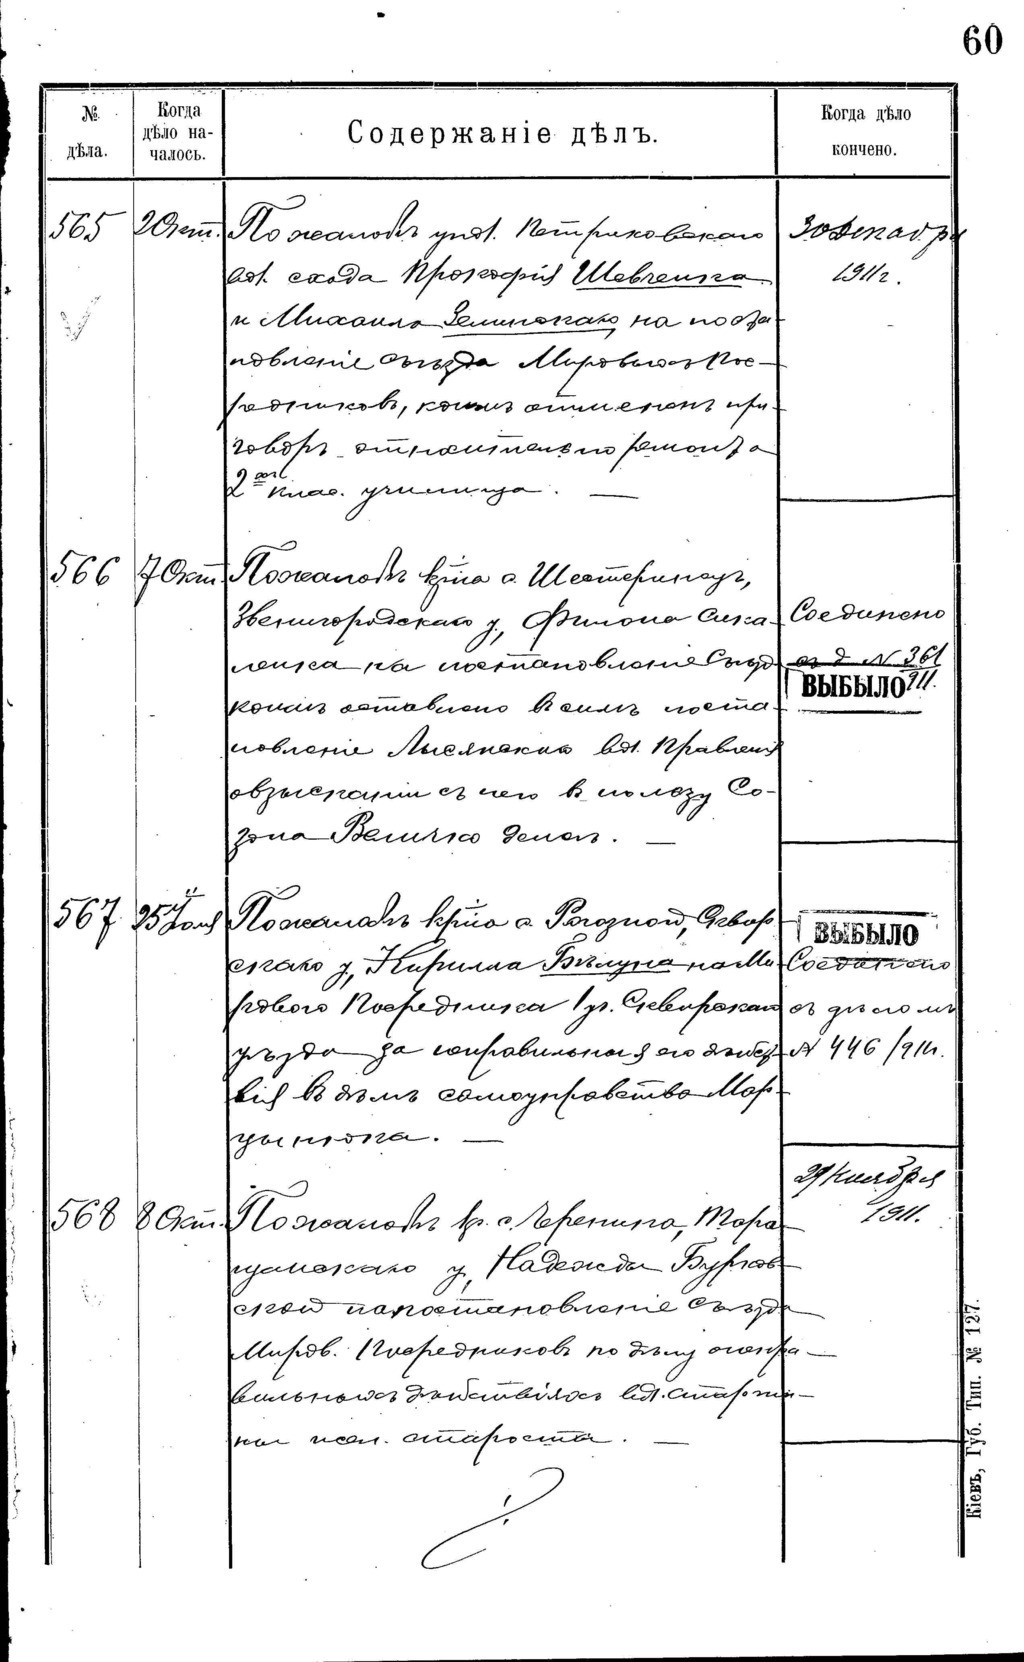 60
№ дѣла.
Когда дѣло на-
чалось.
Содержаніе дѣлъ.
Когда дѣло
кончено.
565 2 Окт. По жалобѣ упол. Петриковскаго
вол. схода Прокофія Шевченка
и Михаила Зелинскаго, на поста-
новленіе Съѣзда Мировыхъ Пос-
редниковъ, коимъ отмененъ при-
говоръ относительно ремонта
2хъ клас. училища. —
30 Декабря
1911 г.
566 7 Окт. По жалобѣ кр-на с. Шестеринецъ,
Звенигородскаго у., Филона Сика-
ленка на постановленіе Съѣзда
коимъ оставлено въ силѣ поста-
новленіе Лысянскаго вол. Правленія
о взысканіи съ него въ пользу Со-
зона Величко денегъ. —
Соединено
съ д. № 361
911.
ВЫБЫЛО
567 25 Іюля По жалобѣ кр-на с. Рогозной, Сквир-
скаго у., Кирилла Бѣлуна на Ми-
рового Посредника 1 уч. Сквирскаго
уѣзда за неправильныя его дѣйст-
вія въ дѣлѣ самоуправства Мар-
цынюка. —
ВЫБЫЛО
Соединено
съ дѣломъ
№ 446/911.
568 8 Окт. По жалобѣ кр. с. Черепина, Тара-
щанскаго у., Надежды Бурков-
ской на постановленіе Съѣзда
Миров. Посредниковъ по дѣлу о непра-
вильныхъ дѣйствіяхъ вол. старши-
ны и сел. старосты. —
29 Ноября
1911.
Кіевъ, Губ. Тип. № 127.